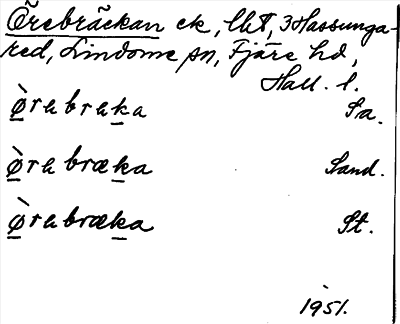 Örebräckan ek, Ubt, 3 Hassunga-
red, Lindome sn, Fjäre hd,
Hall. l.
ø̀rabraka Sa.
ø̀rabræka Sand.
ø̀rabræka St.
1951.